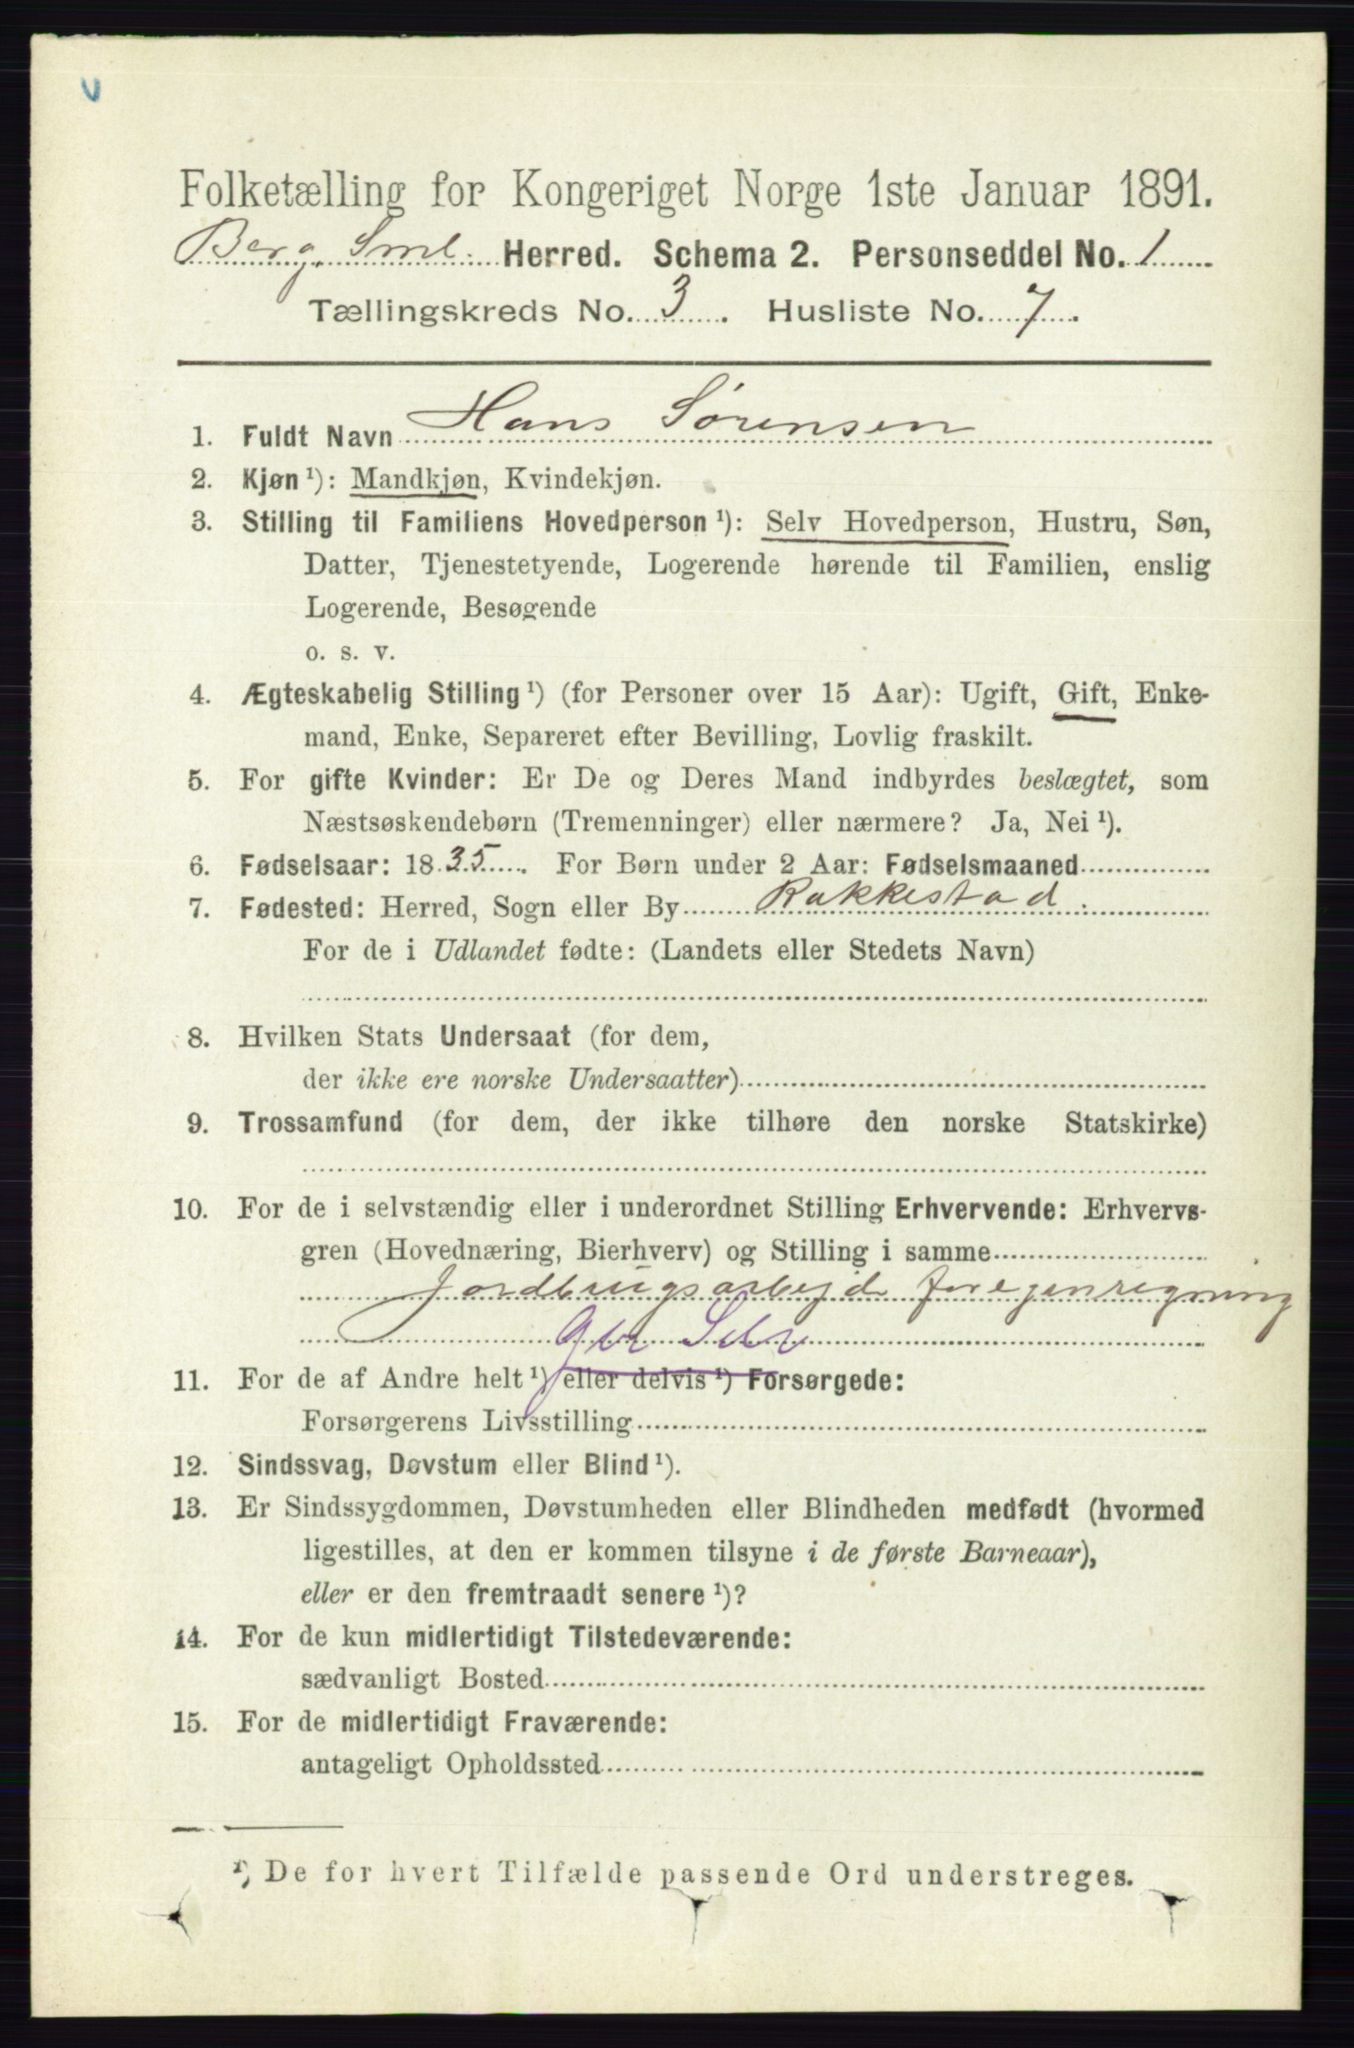 Folketælling for Kongeriget Norge 1ste Januar 1891.
Berg, Sml. Herred. Schema 2. Personseddel No. 1
Tællingskreds No. 3. Husliste No. 7.
1. Fuldt Navn Hans Sörensen
2. Kjøn ¹): Mandkjøn, Kvindekjøn.
3. Stilling til Familiens Hovedperson ¹): Selv Hovedperson, Hustru, Søn,
Datter, Tjenestetyende, Logerende hørende til Familien, enslig
Logerende, Besøgende
o. s. v.
4. Ægteskabelig Stilling ¹) (for Personer over 15 Aar): Ugift, Gift, Enke-
mand, Enke, Separeret efter Bevilling, Lovlig fraskilt.
5. For gifte Kvinder: Er De og Deres Mand indbyrdes beslægtet, som
Næstsøskendebørn (Tremenninger) eller nærmere? Ja, Nei ¹).
6. Fødselsaar: 1835. For Børn under 2 Aar: Fødselsmaaned
7. Fødested: Herred, Sogn eller By Rakkestad.
For de i Udlandet fødte: (Landets eller Stedets Navn)
8. Hvilken Stats Undersaat (for dem,
der ikke ere norske Undersaatter)
9. Trossamfund (for dem, der ikke tilhøre den norske Statskirke)
10. For de i selvstændig eller i underordnet Stilling Erhvervende: Erhvervs-
gren (Hovednæring, Bierhverv) og Stilling i samme
Jordbrugsarbejde for egenregning
Selv
11. For de af Andre helt ¹) eller delvis ¹) Forsørgede:
Forsørgerens Livsstilling
12. Sindssvag, Døvstum eller Blind ¹).
13. Er Sindssygdommen, Døvstumheden eller Blindheden medfødt (hvormed
ligestilles, at den er kommen tilsyne i de første Barneaar),
eller er den fremtraadt senere ¹)?
14. For de kun midlertidigt Tilstedeværende:
sædvanligt Bosted
15. For de midlertidigt Fraværende:
antageligt Opholdssted
¹) De for hvert Tilfælde passende Ord understreges.